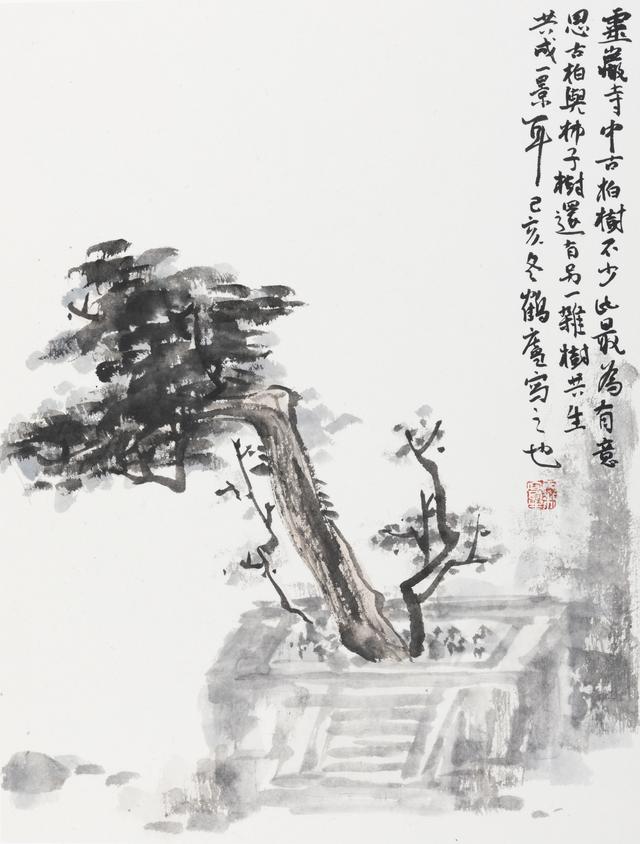 靈巖寺中古柏樹不少此最為有意
思古柏與柿子樹還有另一雜樹共生
共成一景耳己亥冬鶴廬寫之也